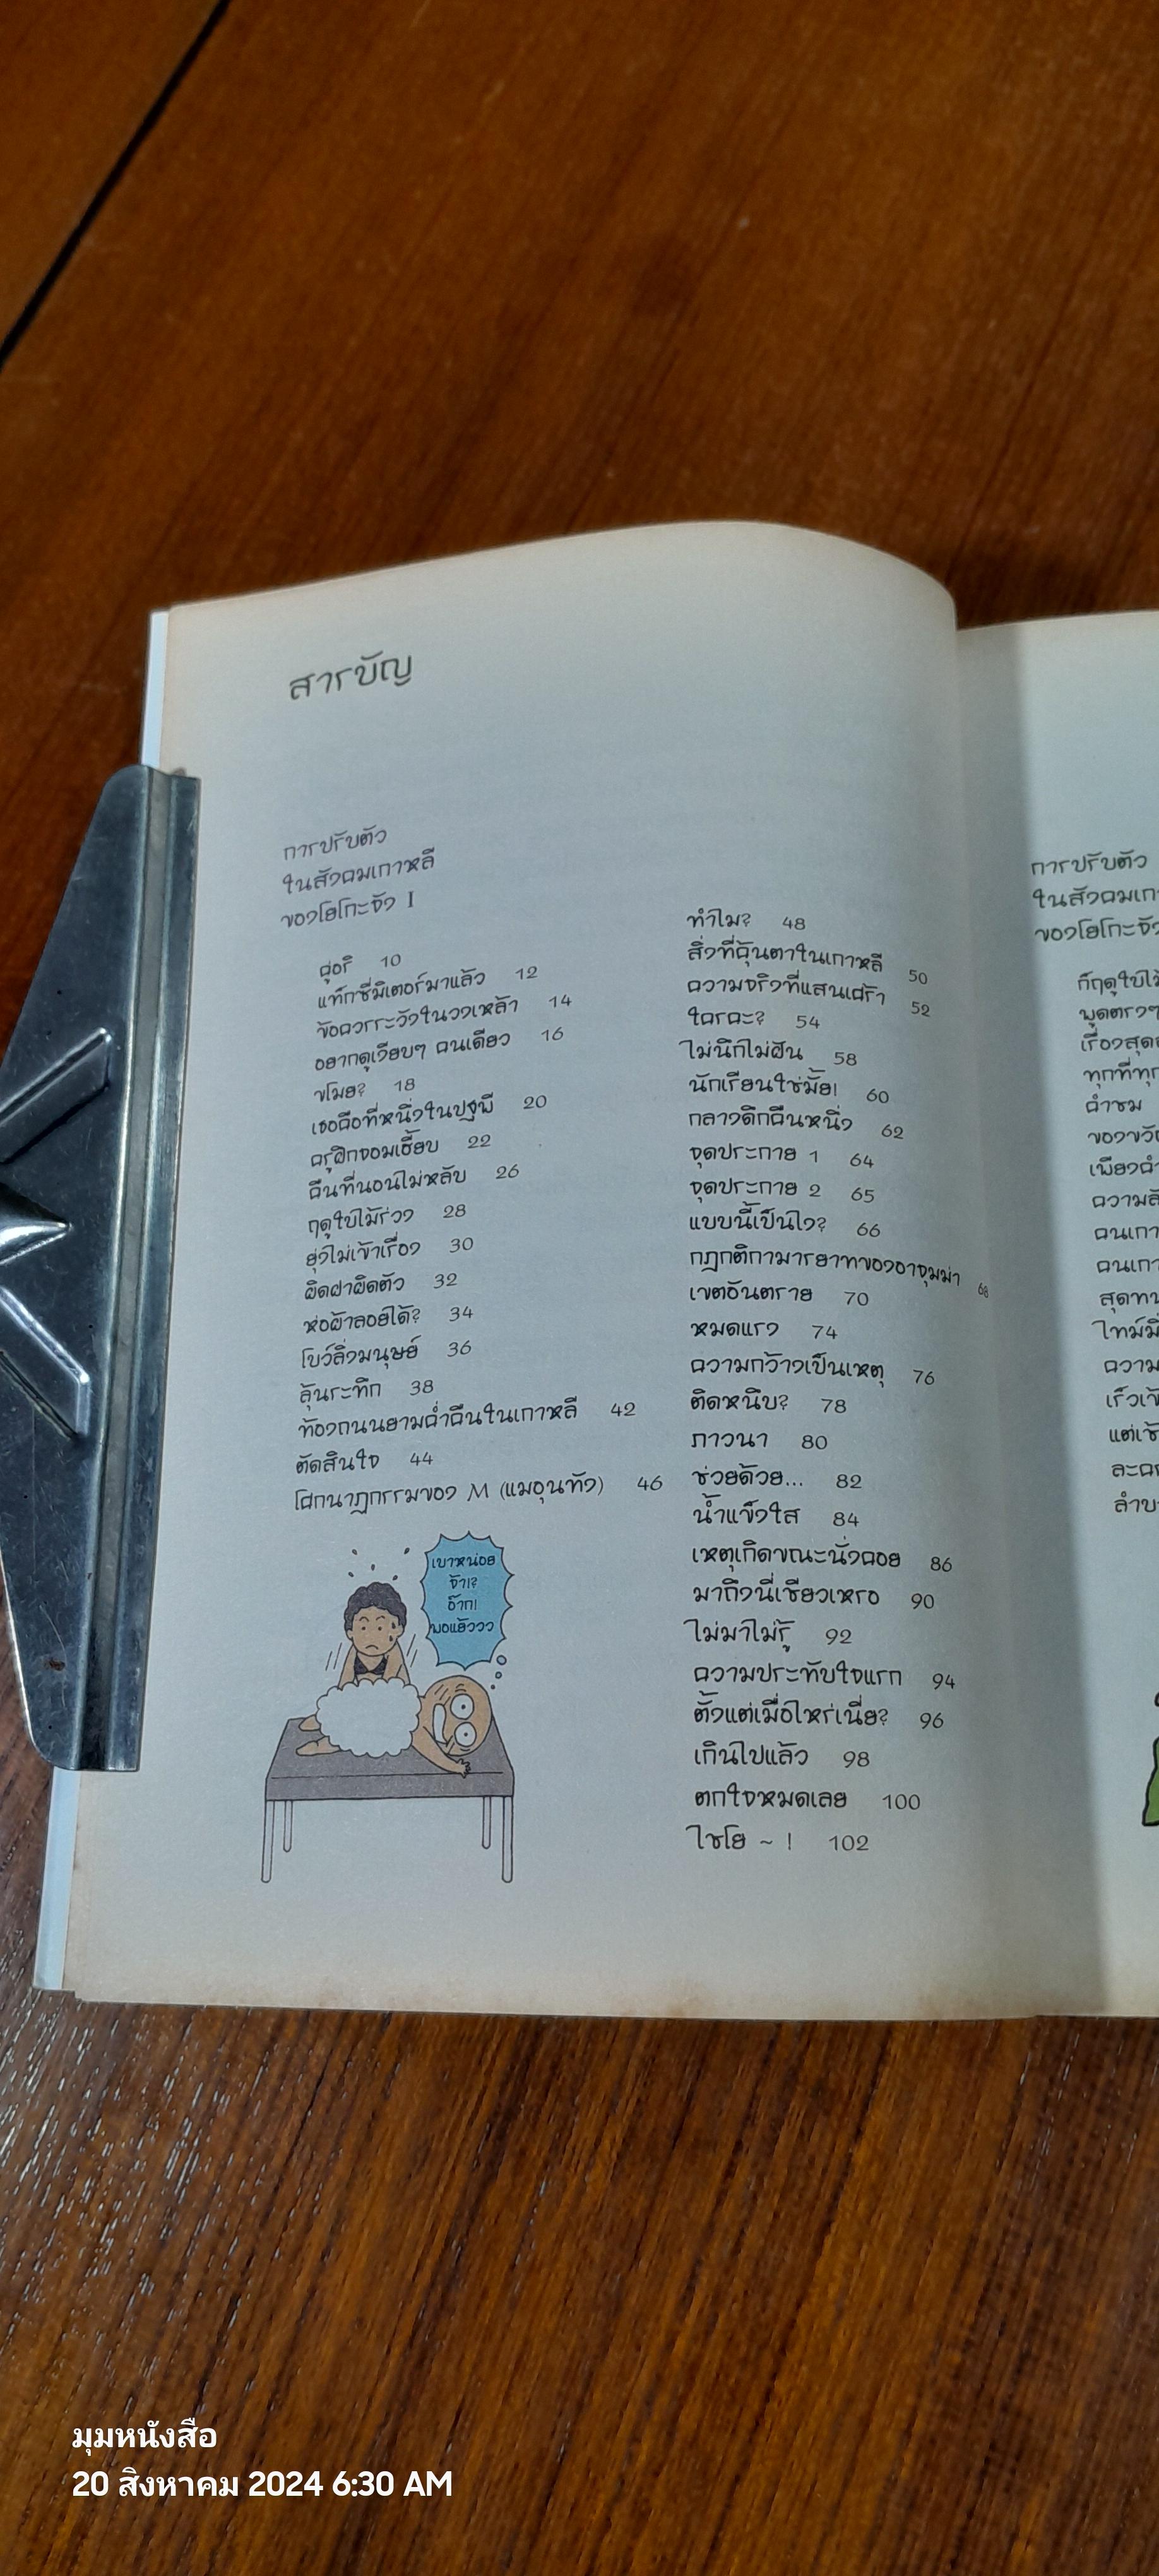 สารบัญ
การปรับตัว
ในสังคมเกาหลี
ของโยโกะจัง I
คูอริ 10
แท็กซี่มิเตอร์มาแล้ว 12
ข้อควรระวังในวงเหล้า 14
อยากดูเงียบๆ คนเดียว 16
ขโมย? 18
เธอคือที่หนึ่งในปฐพี 20
ครูฝึกจอมเฮี้ยบ 22
คืนที่นอนไม่หลับ 26
ฤดูใบไม้ร่วง 28
ยุ่งไม่เข้าเรื่อง 30
ผิดฝาผิดตัว 32
ห่อผ้าลอยได้? 34
โบว์ลิ่งมนุษย์ 36
ลุ้นระทึก 38
ท้องถนนยามค่ำคืนในเกาหลี 42
ตัดสินใจ 44
โศกนาฏกรรมของ M (แมอุนทัง) 46
เบาหน่อย
จ้า!?
อ๊าก!
พอแย้ววว
ทำไม? 48
สิ่งที่คุ้นตาในเกาหลี 50
ความจริงที่แสนเศร้า 52
ใครคะ? 54
ไม่นึกไม่ฝัน 58
นักเรียนใช่มั้ย! 60
กลางดึกคืนหนึ่ง 62
จุดประกาย 1 64
จุดประกาย 2 65
แบบนี้เป็นไง? 66
กฎกติกามารยาทของอาจุมม่า 68
เขตอันตราย 70
หมดแรง 74
ความกว้างเป็นเหตุ 76
ติดหนึบ? 78
ภาวนา 80
ช่วยด้วย... 82
น้ำแข็งใส 84
เหตุเกิดขณะนั่งคอย 86
มาถึงนี่เชียวเหรอ 90
ไม่มาไม่รู้ 92
ความประทับใจแรก 94
ตั้งแต่เมื่อไหร่เนี่ย? 96
เกินไปแล้ว 98
ตกใจหมดเลย 100
ไชโย ~ ! 102
การปรับตัว
ในสังคมเกา
ของโยโกะจัง
ก็ฤดูใบไม้
พูดตรงๆ
เรื่องสุด
ทุกที่ทุก
คำชม
ของขวัญ
เพียงคำ
ความลั
คนเกา
คนเกา
สุดทน
ไทม์มิ
ความ
เร็วเข้
แต่เช้
ละคร
ลำบ
มุมหนังสือ
20 สิงหาคม 2024 6:30 AM